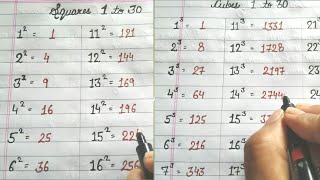 Squares 1 to 30
1² = 1 11² = 121
2² = 4 12² = 144
3² = 9 13² = 169
4² = 16 14² = 196
5² = 25 15² = 22
6² = 36 16² = 256
Cubes 1 to 30
1³ = 1 11³ = 1331
2³ = 8 12³ = 1728 22
3³ = 27 13³ = 2197
4³ = 64 14³ = 2744
5³ = 125 15³ =
6³ = 216 16³
7³ = 343 17³